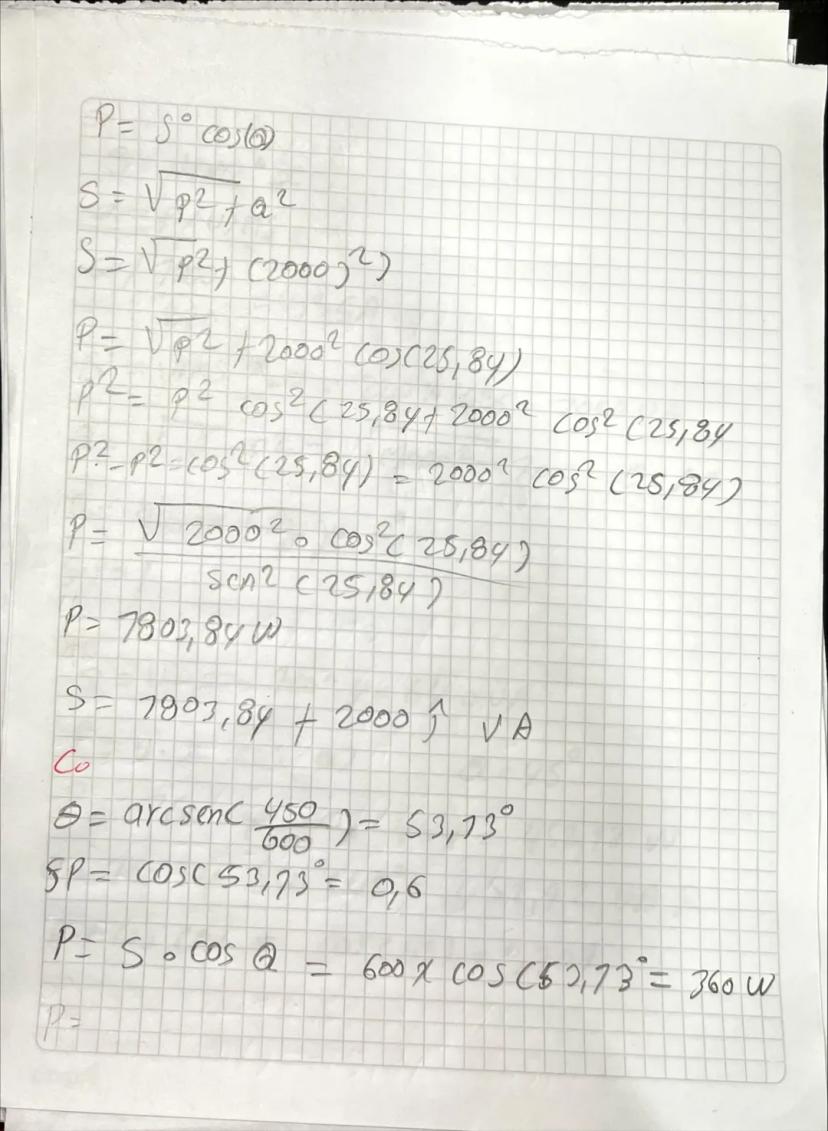 P = S° cos(θ)
S = √p² + Q²
S = √p² + (2000)²)
P = √p² + 2000² cos(25,84)
p² = p² cos²(25,84 + 2000² cos²(25,84
p² - p² = cos²(25,84) = 2000² cos²(25,84)
P = √2000² ∘ cos²(25,84) / sen²(25,84)
P = 7803,84 W
S = 7803,84 + 2000 ĵ VA
Co
θ = arcsen(450/600) = 53,13°
FP = cos(53,13° = 0,6
P = S ∘ cos θ = 600 x cos(53,13° = 360 W
P =